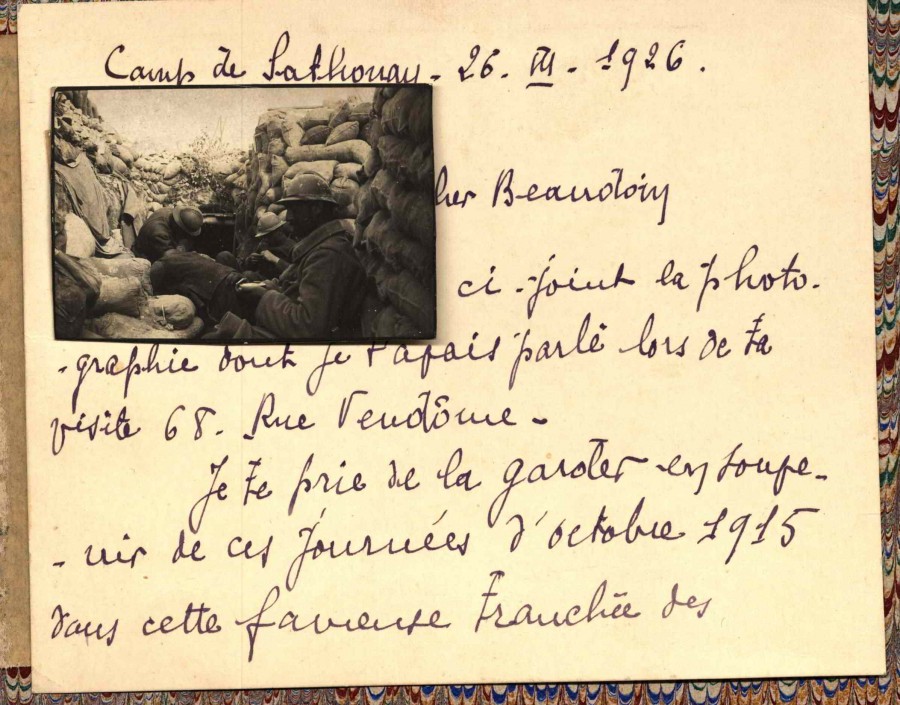 Camp de Sathonay - 26. III - 1926.
her Beaudoin
ci-joint la photo-
-graphie dont je t'avais parlé lors de ta
visite 68. Rue Vendôme -
Je te prie de la garder en souve-
-nir de ces journées d'octobre 1915
dans cette fameuse Tranchée des